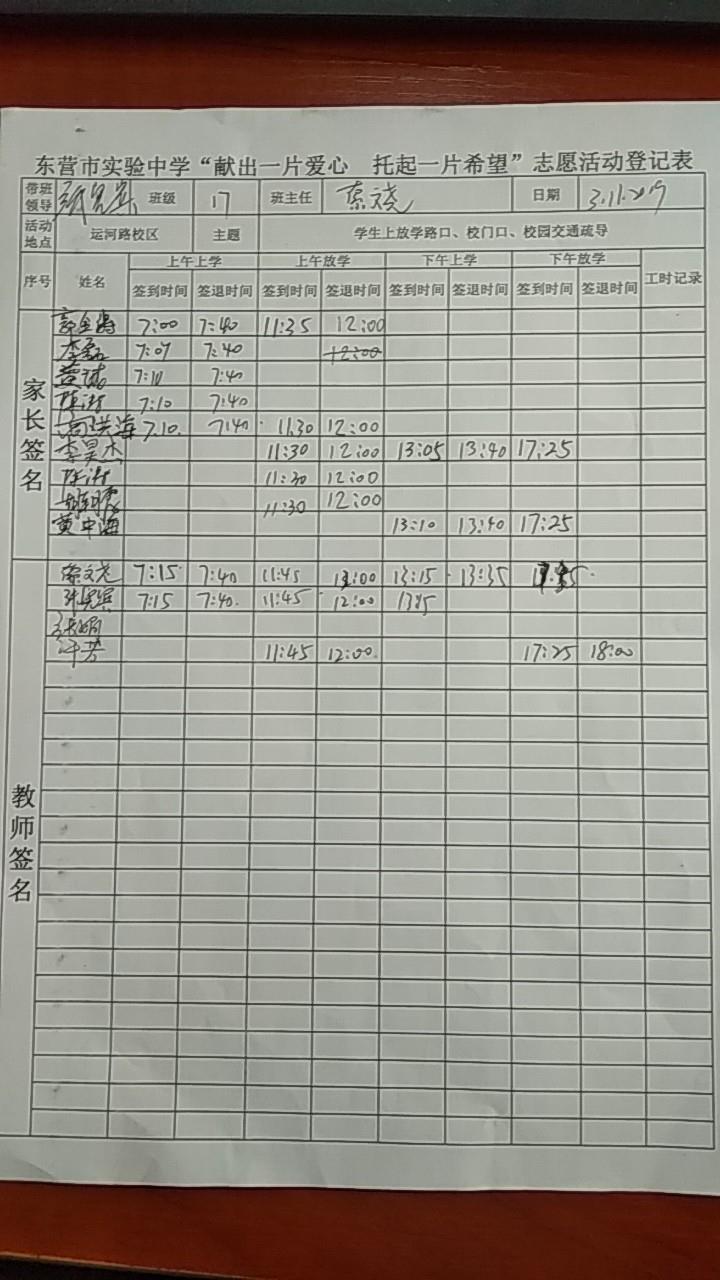 东营市实验中学“献出一片爱心 托起一片希望”志愿活动登记表
带班领导 班级 17 班主任 日期 3.11.2019
活动地点 运河路校区 主题 学生上放学路口、校门口、校园交通疏导
序号 姓名 上午上学 上午放学 下午上学 下午放学 工时记录
签到时间 签退时间 签到时间 签退时间 签到时间 签退时间 签到时间 签退时间
家长签名
7:00 7:40 11:35 12:00
李磊 7:07 7:40 12:00
7:10 7:40
7:10 7:40
高洪海 7:10 7:40 11:30 12:00
李昊杰 11:30 12:00 13:05 13:40 17:25
11:30 12:00
11:30 12:00
黄中海 13:10 13:40 17:25
教师签名
7:15 7:40 11:45 12:00 13:15 13:35
7:15 7:40 11:45 12:00 13:15
11:45 12:00 17:25 18:00